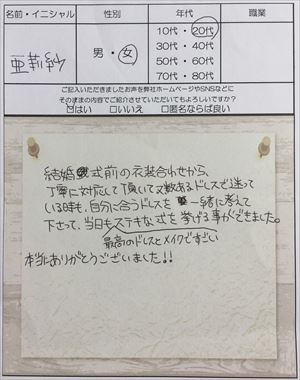 名前・イニシャル
性別
年代
職業
亜莉紗
男・女
10代・20代
30代・40代
50代・60代
70代・80代
ご記入いただきましたお声を弊社ホームページやSNSなどに
そのままの内容でご紹介させていただいてもよろしいですか？
☑はい □いいえ □匿名ならば良い
結婚式前の衣装合わせから、
丁寧に対応して頂いて数あるドレスで迷って
いる時も、自分に合うドレスを一緒に考えて
下さって、当日もステキな式を挙げる事ができました。
最高のドレスとメイクですごい
本当にありがとうございました!!